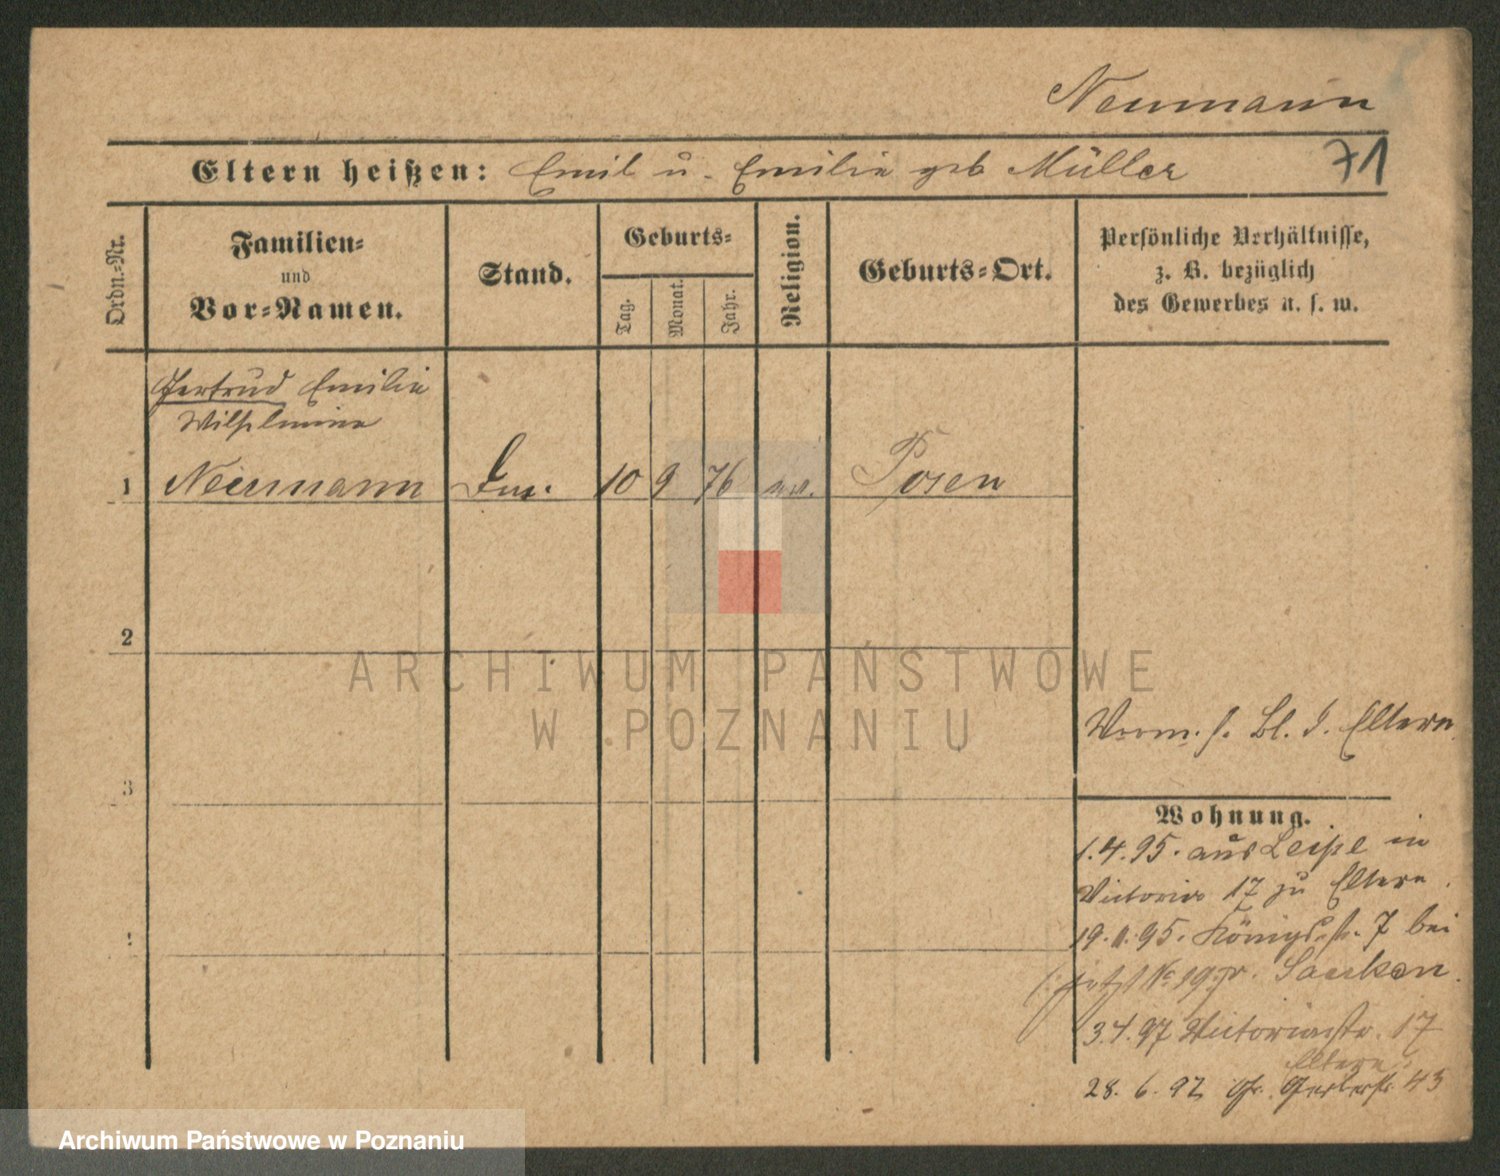 Neumann
71
Eltern heißen: Emil u. Emilie geb Müller
Ordn.-Nr.
Familien-
und
Vor-Namen.
Stand.
Geburts-
Tag.
Monat.
Jahr.
Religion.
Geburts-Ort.
Persönliche Verhältnisse,
z. B. bezüglich
des Gewerbes u. s. w.
Gertrud Emilie
Wilhelmine
1 Neumann 10 9 76 ev. Posen
2
3
Verm. s. Bl. d. Eltern
Wohnung.
1.4.95. aus in
Victoria 17 zu Eltern.
19. 95. Königsstr. 7 bei
jetzt No 19
3.4.97 Victoriastr. 17
Eltern
28. 6. 97 Gr. Gerberstr. 43
ARCHIWUM PAŃSTWOWE
W POZNANIU
Archiwum Państwowe w Poznaniu